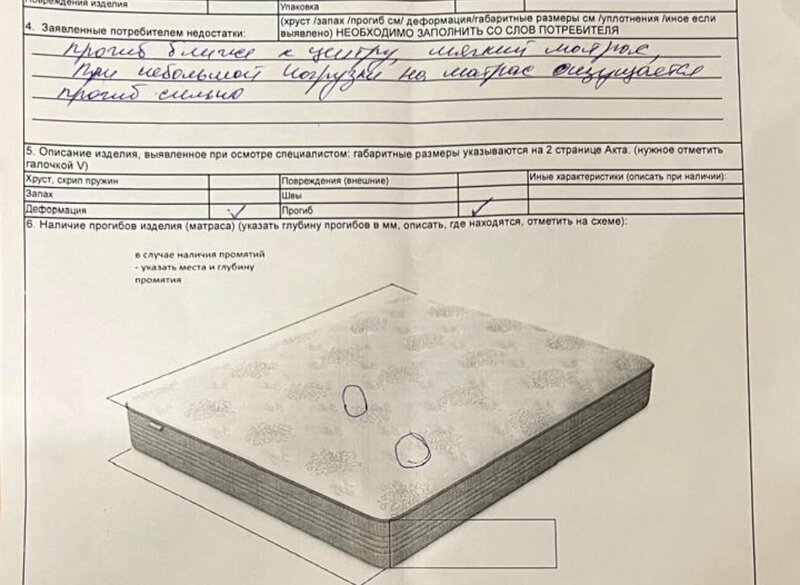 Повреждения изделия
Упаковка
4. Заявленные потребителем недостатки:
(хруст /запах /прогиб см/ деформация/габаритные размеры см /уплотнения /иное если
выявлено) НЕОБХОДИМО ЗАПОЛНИТЬ СО СЛОВ ПОТРЕБИТЕЛЯ
прогиб ближе к центру, мягкий матрас,
При небольшой погрузки на матрас ощущается
прогиб сильно
5. Описание изделия, выявленное при осмотре специалистом: габаритные размеры указываются на 2 странице Акта. (нужное отметить
галочкой V)
Хруст, скрип пружин
Повреждения (внешние)
Иные характеристики (описать при наличии):
Запах
Швы
Деформация
Прогиб
6. Наличие прогибов изделия (матраса) (указать глубину прогибов в мм, описать, где находятся, отметить на схеме):
в случае наличия промятий
- указать места и глубину
промятия